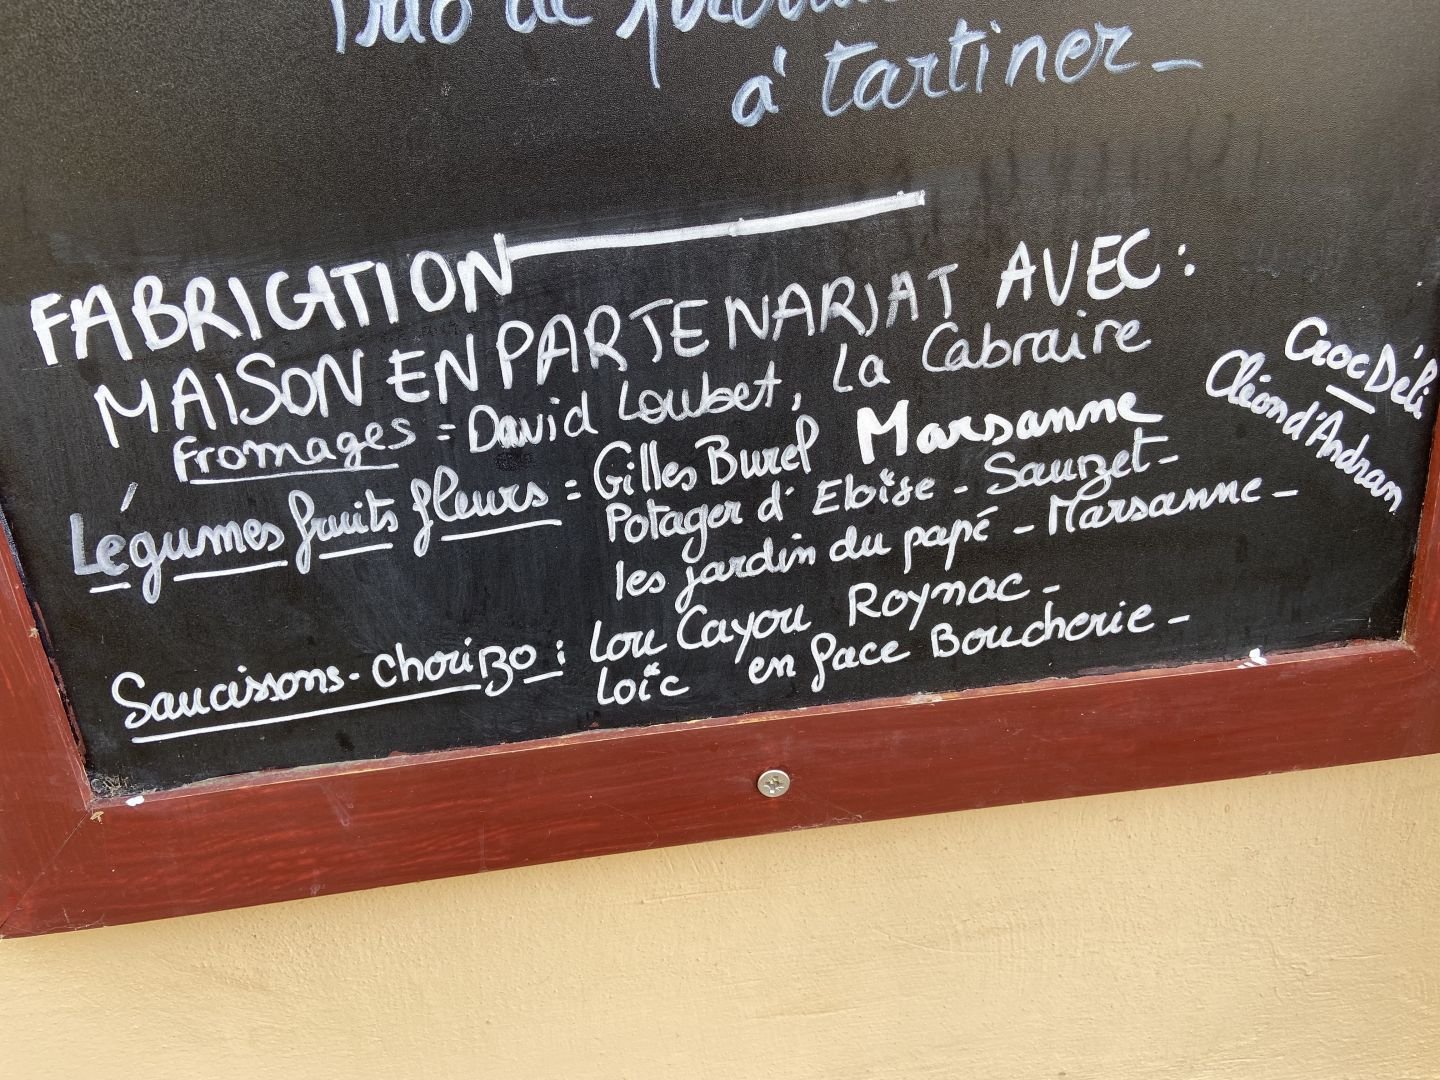 Trio de
à tartiner_
FABRICATION
MAISON EN PARTENARIAT AVEC :
Fromages = David Loubet, La Cabraire
Légumes fruits fleurs = Gilles Burel Marsanne
Potager d'Eloïse - Sauzet -
les jardin du papé - Marsanne -
Saucissons - Chorizo : Lou Cayou Roynac -
Loïc en face Boucherie -
Croc Déli
Cléon d'Andran